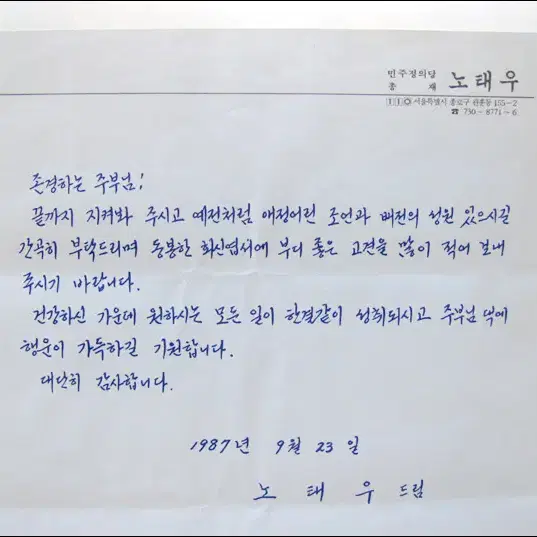 민주정의당
총재 노태우
110 서울특별시 종로구 관훈동 155-2
☎ 730-8771~6
존경하는 주부님!
끝까지 지켜봐 주시고 예전처럼 애정어린 조언과 배전의 성원 있으시길
간곡히 부탁드리며 동봉한 회신엽서에 부디 좋은 고견을 많이 적어 보내
주시기 바랍니다.
건강하신 가운데 원하시는 모든 일이 한결같이 성취되시고 주부님 댁에
행운이 가득하길 기원합니다.
대단히 감사합니다.
1987년 9월 23일
노태우 드림